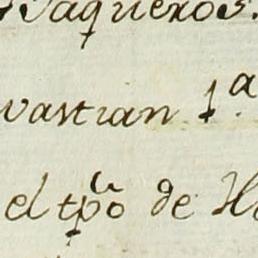 Vaqueros.
vastian 1ª
el tpõ de H